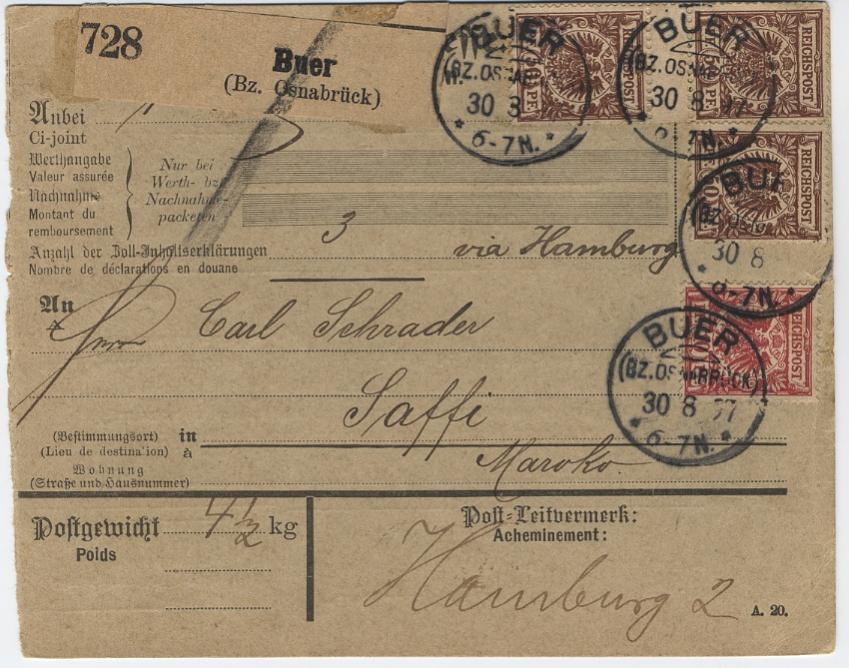 728
Buer
(Bz. Osnabrück)
BUER
(BZ. OSNA
30 8
* 6-7N. *
BUER
(BZ. OSNAB
30 8 97
* 6-7N. *
50 PF.
REICHSPOST
REICHSPOST
REICHSPOST
Anbei 1
Ci-joint
Werthangabe
Valeur assurée
Nachnahme
Montant du
remboursement
Nur bei
Werth- bz.
Nachnahme-
packeten
BUER
(BZ. OSN
30 8
* 6-7N. *
Anzahl der Zoll-Inhaltserklärungen 3
Nombre de déclarations en douane
via Hamburg
An
Herrn Carl Schrader
REICHSPOST
BUER
(BZ. OSNABRÜCK)
30 8 97
* 6-7N. *
Saffi
(Bestimmungsort) in
(Lieu de destination) à
Maroko.
Wohnung
(Straße und Hausnummer)
Postgewicht 4½ kg
Poids
Post-Leitvermerk:
Acheminement:
Hamburg 2
A. 20.